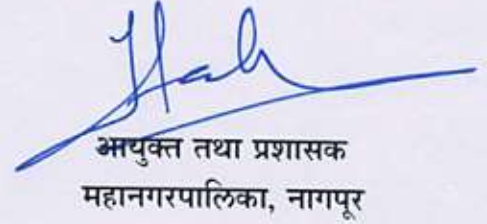 आयुक्त तथा प्रशासक
महानगरपालिका, नागपूर